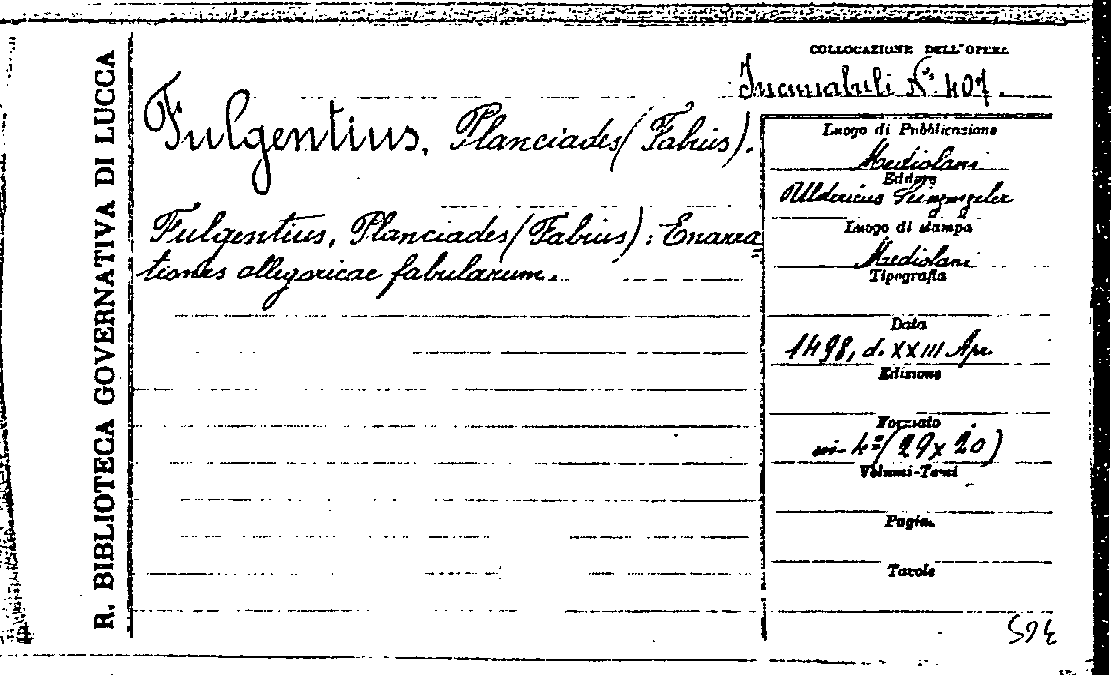 R. BIBLIOTECA GOVERNATIVA DI LUCCA
COLLOCAZIONE DELL'OPERA
Incunabuli N.° 407.
Fulgentius, Planciades (Fabius).
Fulgentius, Planciades (Fabius): Enarra=
tiones allegoricae fabularum.
Luogo di Pubblicazione
Mediolani
Editore
Uldericus Scinzenzeler
Luogo di stampa
Mediolani
Tipografia
Data
1498, d. XXIII Apr.
Edizione
Formato
in-4° (29 x 20)
Volumi-Tomi
Pagine
Tavole